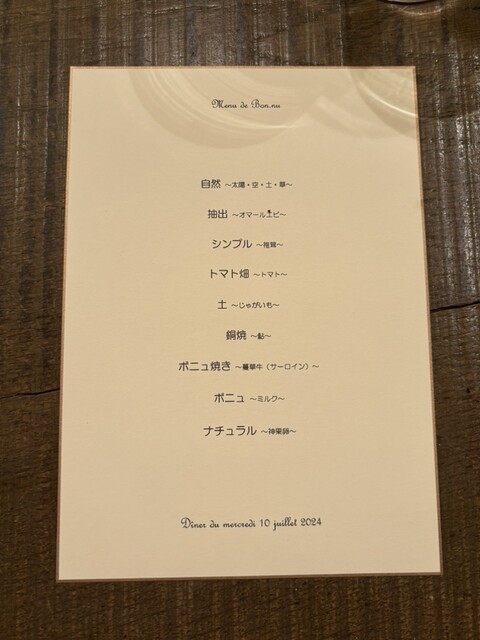 Menu de Bon.nu
自然 ～太陽・空・土・草～
抽出 ～オマールエビ～
シンプル
トマト畑 ～トマト～
土 ～じゃがいも～
銅焼 ～鮎～
ボニュ焼き ～蔓華牛（サーロイン）～
ボニュ ～ミルク～
ナチュラル ～神果師～
Dîner du mercredi 10 juillet 2024